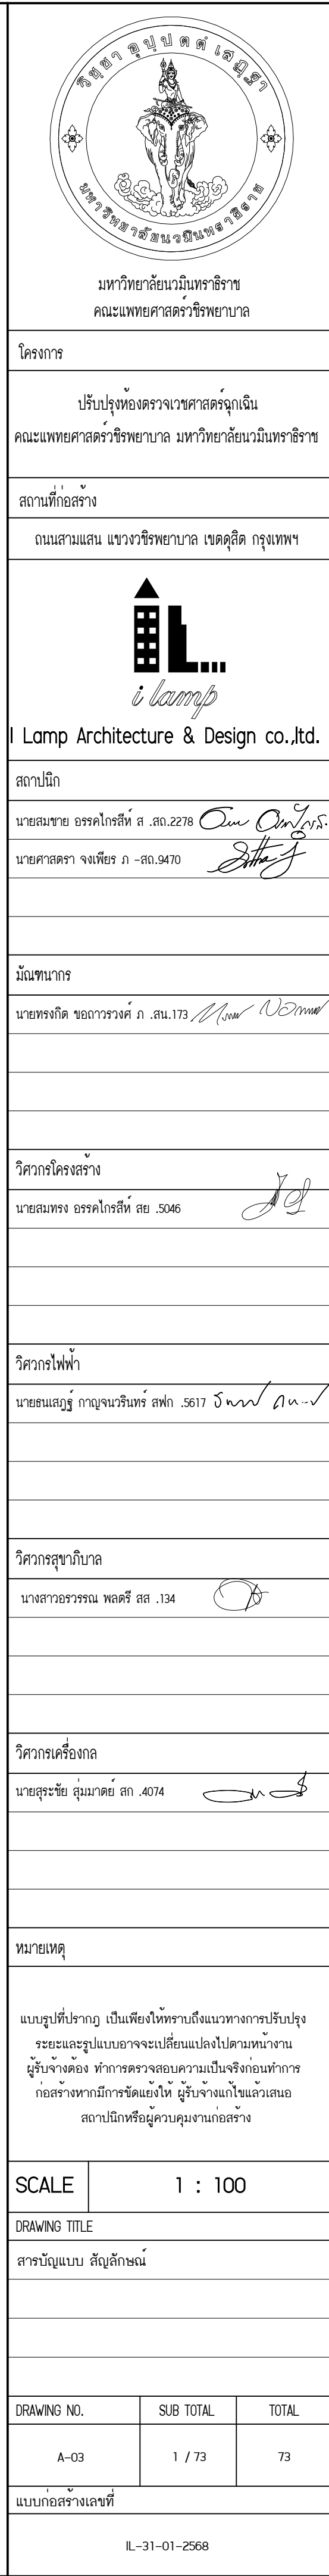 วิชฺชา อุปฺปตตํ เสฏฺฐา
มหาวิทยาลัยนวมินทราธิราช
มหาวิทยาลัยนวมินทราธิราช
คณะแพทยศาสตร์วชิรพยาบาล
โครงการ
ปรับปรุงห้องตรวจเวชศาสตร์ฉุกเฉิน
คณะแพทยศาสตร์วชิรพยาบาล มหาวิทยาลัยนวมินทราธิราช
สถานที่ก่อสร้าง
ถนนสามแสน แขวงวชิรพยาบาล เขตดุสิต กรุงเทพฯ
i lamp
I Lamp Architecture & Design co.,ltd.
สถาปนิก
นายสมชาย อรรคไกรสีห์ ส .สถ.2278
นายศาสตรา จงเพียร ภ -สถ.9470
มัณฑนากร
นายทรงกิต ขอถาวรวงศ์ ภ .สน.173
วิศวกรโครงสร้าง
นายสมทรง อรรคไกรสีห์ สย .5046
วิศวกรไฟฟ้า
นายธนเสฎฐ์ กาญจนวรินทร์ สฟก .5617
วิศวกรสุขาภิบาล
นางสาวอรวรรณ พลตรี สส .134
วิศวกรเครื่องกล
นายสุระชัย สุ่มมาตย์ สก .4074
หมายเหตุ
แบบรูปที่ปรากฎ เป็นเพียงให้ทราบถึงแนวทางการปรับปรุง
ระยะและรูปแบบอาจจะเปลี่ยนแปลงไปตามหน้างาน
ผู้รับจ้างต้อง ทำการตรวจสอบความเป็นจริงก่อนทำการ
ก่อสร้างหากมีการขัดแย้งให้ ผู้รับจ้างแก้ไขแล้วเสนอ
สถาปนิกหรือผู้ควบคุมงานก่อสร้าง
SCALE 1 : 100
DRAWING TITLE
สารบัญแบบ สัญลักษณ์
DRAWING NO. SUB TOTAL TOTAL
A-03 1 / 73 73
แบบก่อสร้างเลขที่
IL-31-01-2568